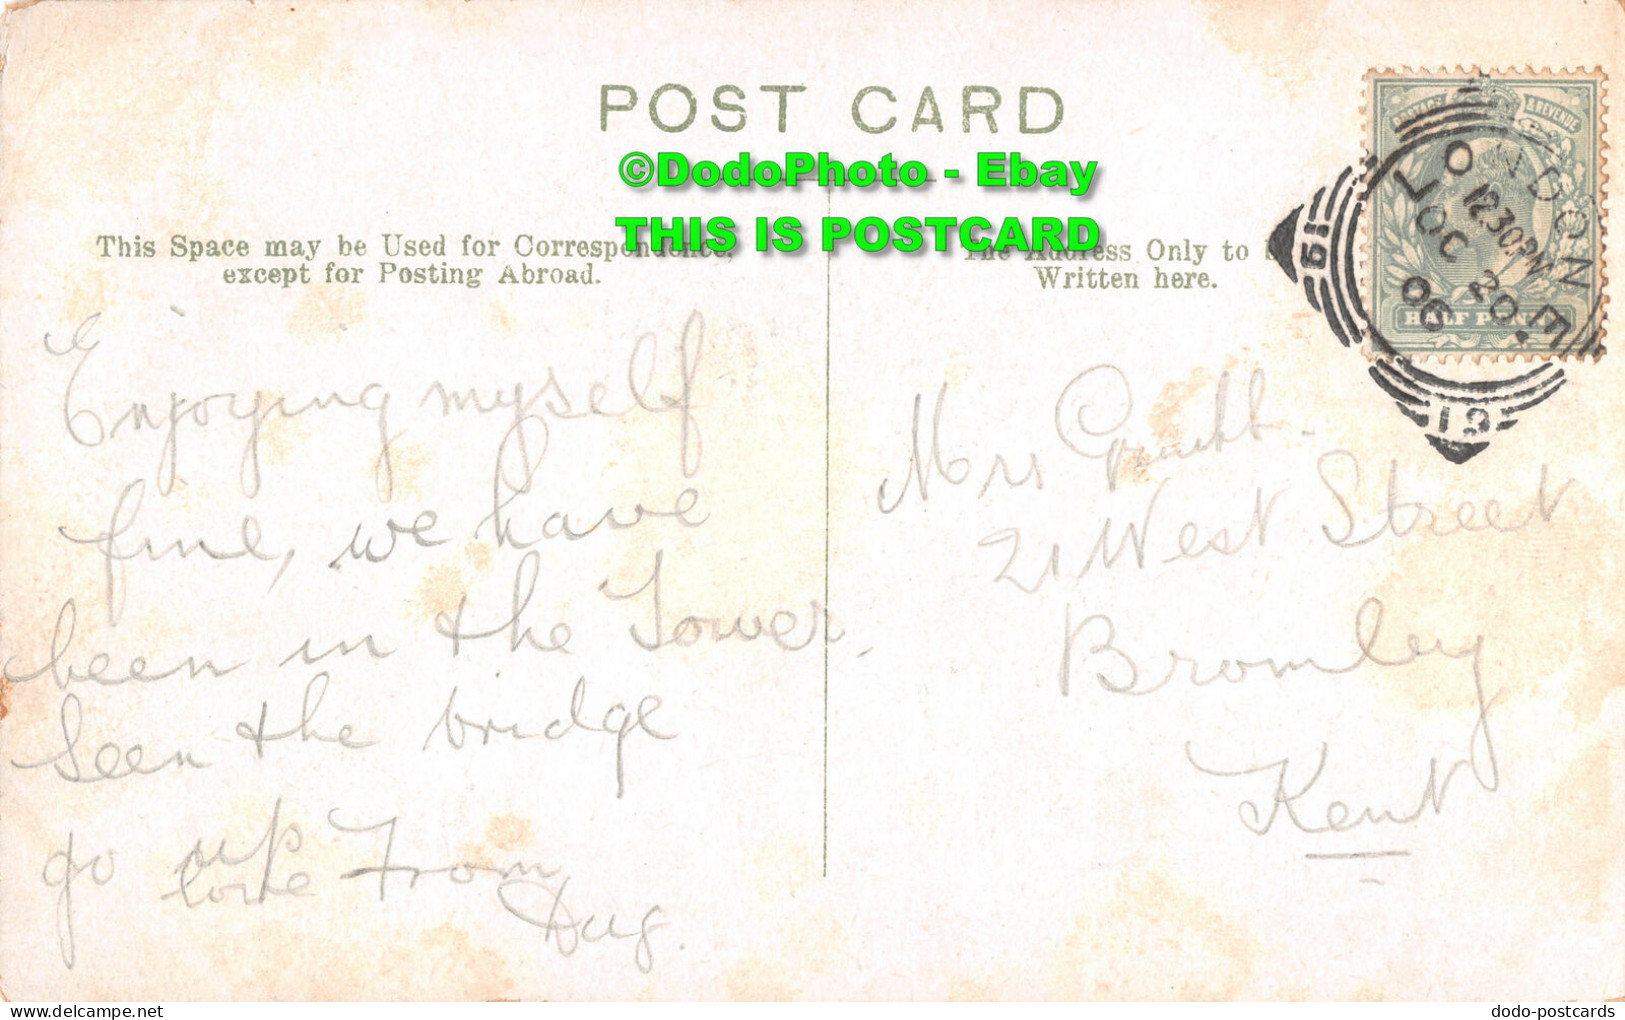 POST CARD
©DodoPhoto - Ebay
THIS IS POSTCARD
This Space may be Used for Correspondence,
except for Posting Abroad.
The Address Only to be
Written here.
Enjoying myself
fine, we have
been in the Tower.
seen the bridge
go up
love From
Dug.
Mrs
21 West Street
Bromley
Kent
POSTAGE & REVENUE
HALF PENNY
LONDON. E
12.30PM
OC 20
06
61
19
dodo-postcards